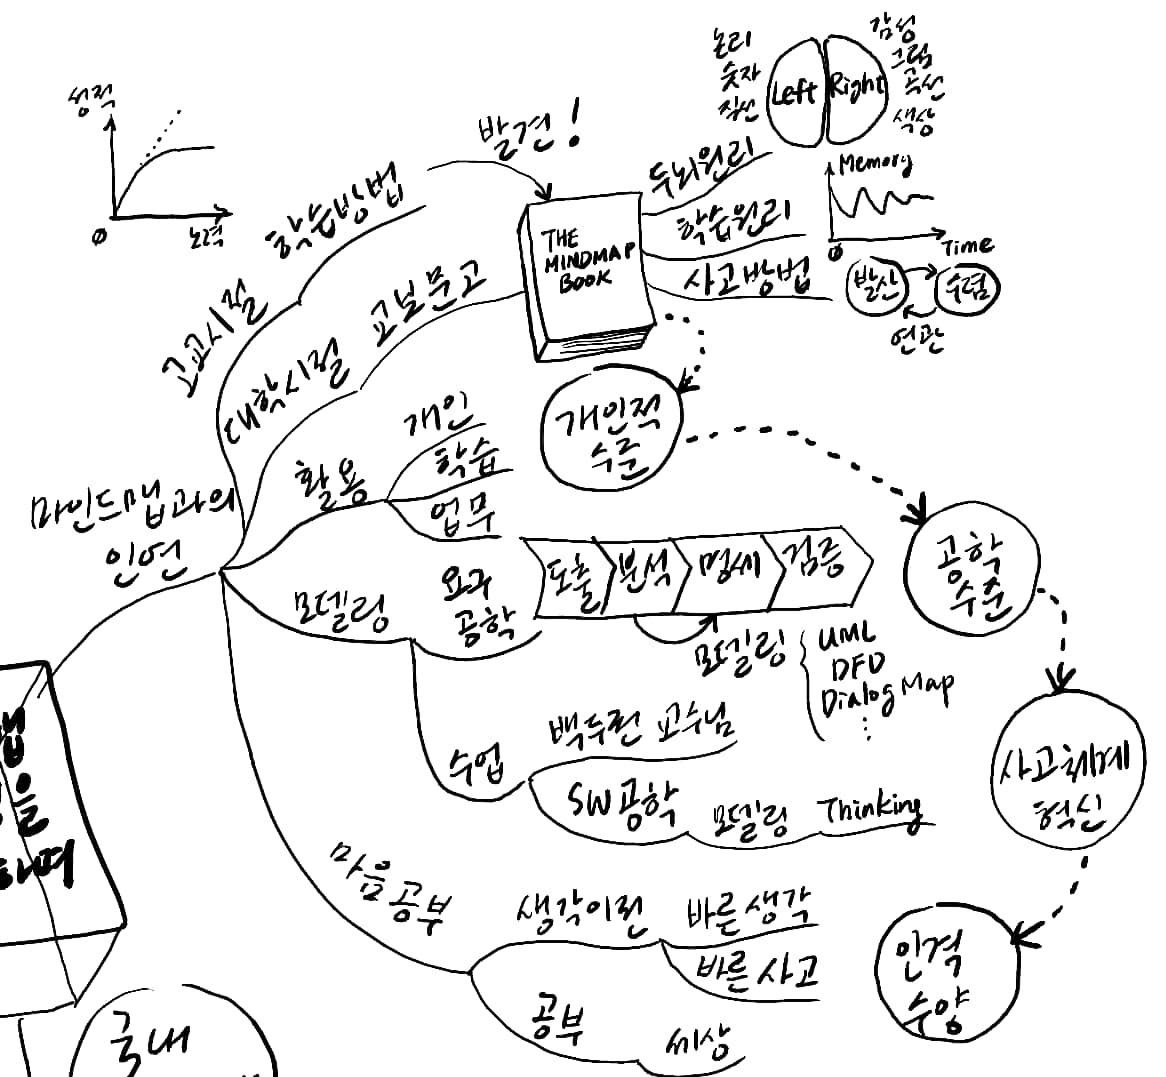 성적
0
노력
논리
숫자
직선
Left
Right
감성
그림
곡선
색상
발견!
THE
MINDMAP
BOOK
두뇌원리
학습원리
사고방법
Memory
0
Time
발산
수렴
연관
고교시절
학습방법
대학시절
교보문고
마인드맵과의
인연
활용
개인
학습
업무
개인적
수준
모델링
요구
공학
도출
분석
명세
검증
모델링
UML
DFD
Dialog Map
공학
수준
수업
백두권 교수님
SW공학
모델링
Thinking
사고체계
혁신
마음공부
생각이란
바른생각
바른사고
공부
세상
인격
수양
맵
을
하며
국내